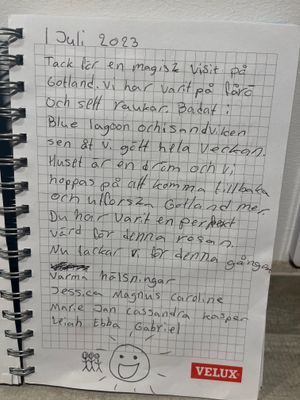 1 Juli 2023
Tack för en magisk visit på
Gotland. Vi har varit på fårö
och sett raukar. Badat i
Blue lagoon och i sandviken
sen åt vi gött hela veckan.
Huset är en dröm och vi
hoppas på att komma tillbaka
och utforska Gotland mer
Du har varit en perfekt
värd för denna resan.
Nu tackar vi för denna gången
Varma hälsningar
Jessica Magnus Caroline
Marie Jan Cassandra Kasper
Leiah Ebba Gabriel
VELUX